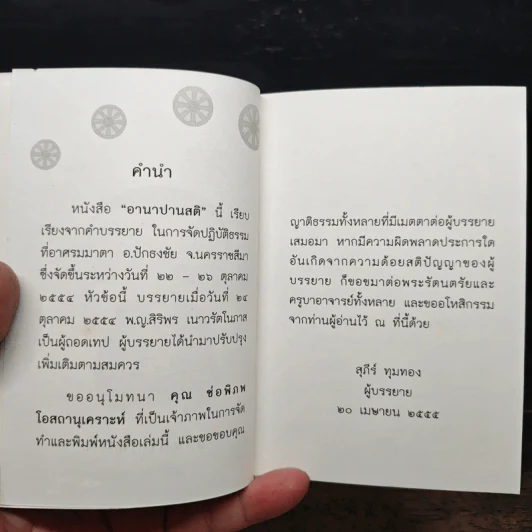 คำนำ
หนังสือ “อานาปานสติ” นี้ เรียบ
เรียงจากคำบรรยาย ในการจัดปฏิบัติธรรม
ที่อาศรมมาตา อ.ปักธงชัย จ.นครราชสีมา
ซึ่งจัดขึ้นระหว่างวันที่ ๒๒ – ๒๖ ตุลาคม
๒๕๕๔ หัวข้อนี้ บรรยายเมื่อวันที่ ๒๔
ตุลาคม ๒๕๕๔ พ.ญ.สิริพร เนาวรัตโนภาส
เป็นผู้ถอดเทป ผู้บรรยายได้นำมาปรับปรุง
เพิ่มเติมตามสมควร
ขออนุโมทนา คุณ ช่อพิภพ
โอสถานุเคราะห์ ที่เป็นเจ้าภาพในการจัด
ทำและพิมพ์หนังสือเล่มนี้ และขอขอบคุณ
ญาติธรรมทั้งหลายที่มีเมตตาต่อผู้บรรยาย
เสมอมา หากมีความผิดพลาดประการใด
อันเกิดจากความด้อยสติปัญญาของผู้
บรรยาย ก็ขอขมาต่อพระรัตนตรัยและ
ครูบาอาจารย์ทั้งหลาย และขออโหสิกรรม
จากท่านผู้อ่านไว้ ณ ที่นี้ด้วย
สุภีร์ ทุมทอง
ผู้บรรยาย
๒๐ เมษายน ๒๕๕๕